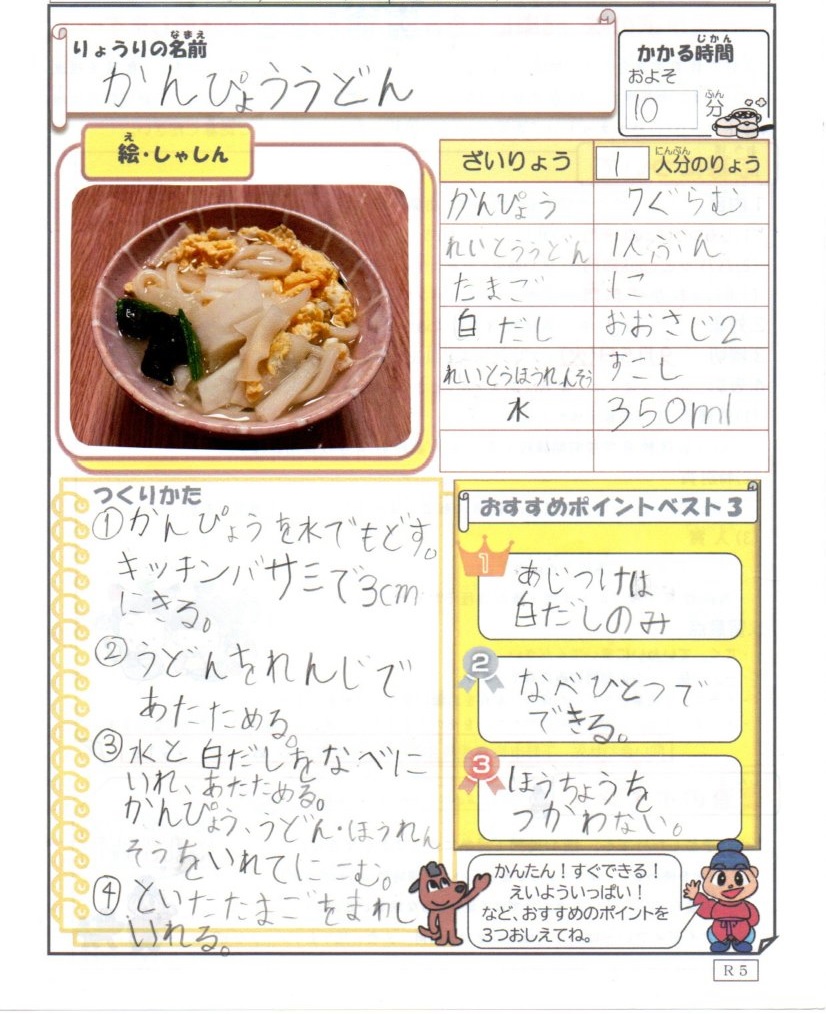 りょうりの名前
なまえ
かんぴょううどん
かかる時間
じかん
およそ
10分
ぷん
絵・しゃしん
え
ざいりょう 1人分のりょう
にんぶん
かんぴょう 7ぐらむ
れいとううどん 1人ぶん
たまご 1こ
白だし おおさじ2
れいとうほうれんそう すこし
水 350ml
つくりかた
①かんぴょうを水でもどす。
キッチンバサミで3cm
にきる。
②うどんをれんじで
あたためる。
③水と白だしをなべに
いれ、あたためる。
かんぴょう、うどん・ほうれん
そうをいれてにこむ。
④といたたまごをまわし
いれる。
おすすめポイントベスト3
1
あじつけは
白だしのみ
2
なべひとつで
できる。
3
ほうちょうを
つかわない。
かんたん!すぐできる!
えいよういっぱい!
など、おすすめのポイントを
3つおしえてね。
R5